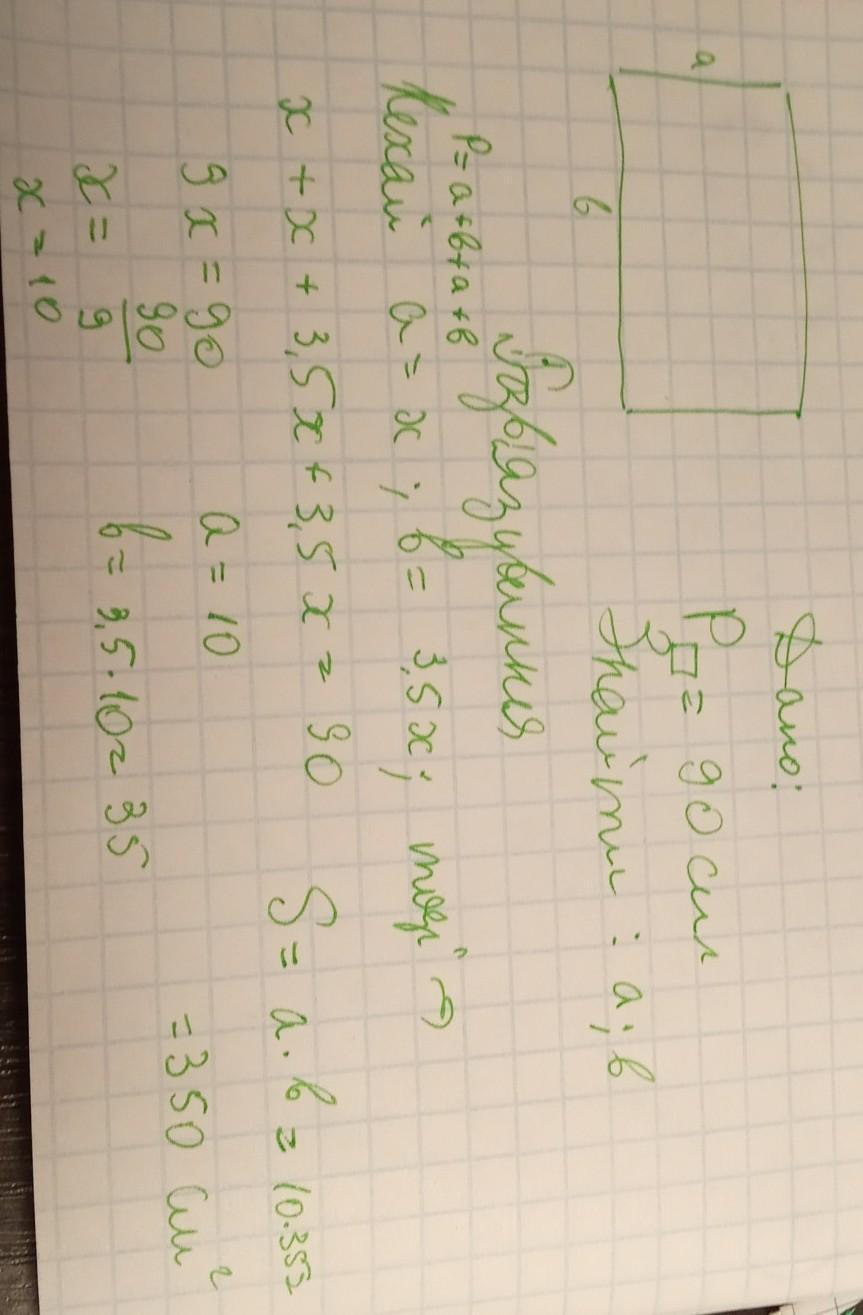 Дано:
P▭ = 90 см
Знайти : a ; b
a
b
Розв'язування
P = a + b + a + b
Нехай a = x ; b = 3,5x ; тоді
x + x + 3,5x + 3,5x = 90
9x = 90
x = 90/9
x = 10
a = 10
b = 3,5 · 10 = 35
S = a · b = 10 · 35 =
= 350 см²